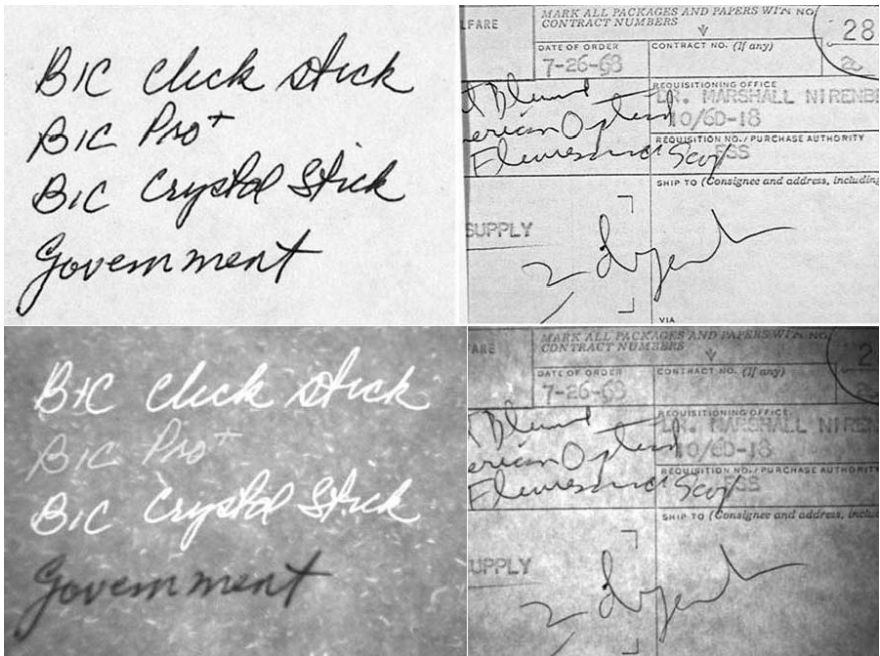 BIC click stick
BIC Pro+
BIC Crystal Stick
Government
LFARE
MARK ALL PACKAGES AND PAPERS WITH
CONTRACT NUMBERS
28
DATE OF ORDER
7-26-68
CONTRACT NO. (If any)
REQUISITIONING OFFICE
DR. MARSHALL NIRENBE
10/6D-18
REQUISITION NO./PURCHASE AUTHORITY
FSS
SHIP TO (Consignee and address, including
SUPPLY
2
VIA
BIC click stick
BIC Pro+
BIC Crystal Stick
Government
ARE
MARK ALL PACKAGES AND PAPERS WITH NO.
CONTRACT NUMBERS
2
DATE OF ORDER
7-26-68
CONTRACT NO. (If any)
REQUISITIONING OFFICE
DR. MARSHALL NIREN
10/6D-18
REQUISITION NO./PURCHASE AUTHORITY
SS
SHIP TO (Consignee and address, inclu
SUPPLY
2